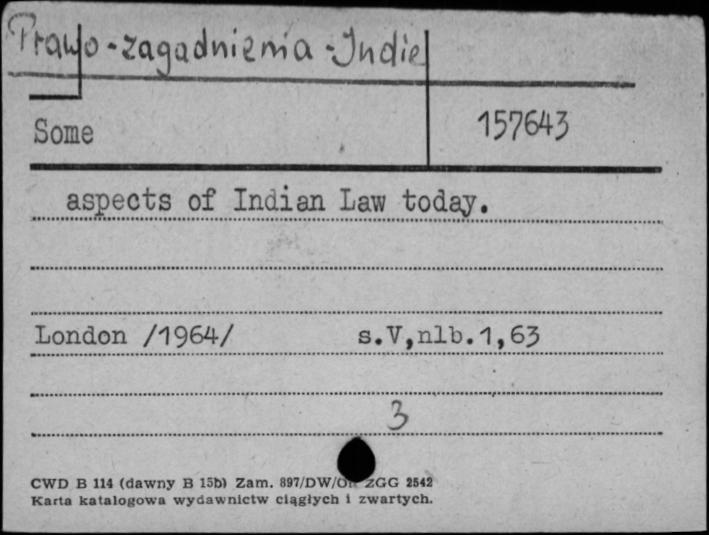 Prawo-zagadnienia-Indie
Some 157643
aspects of Indian Law today.
London /1964/ s.V,nlb.1,63
3
CWD B 114 (dawny B 15b) Zam. 897/DW/OR ZGG 2542
Karta katalogowa wydawnictw ciągłych i zwartych.